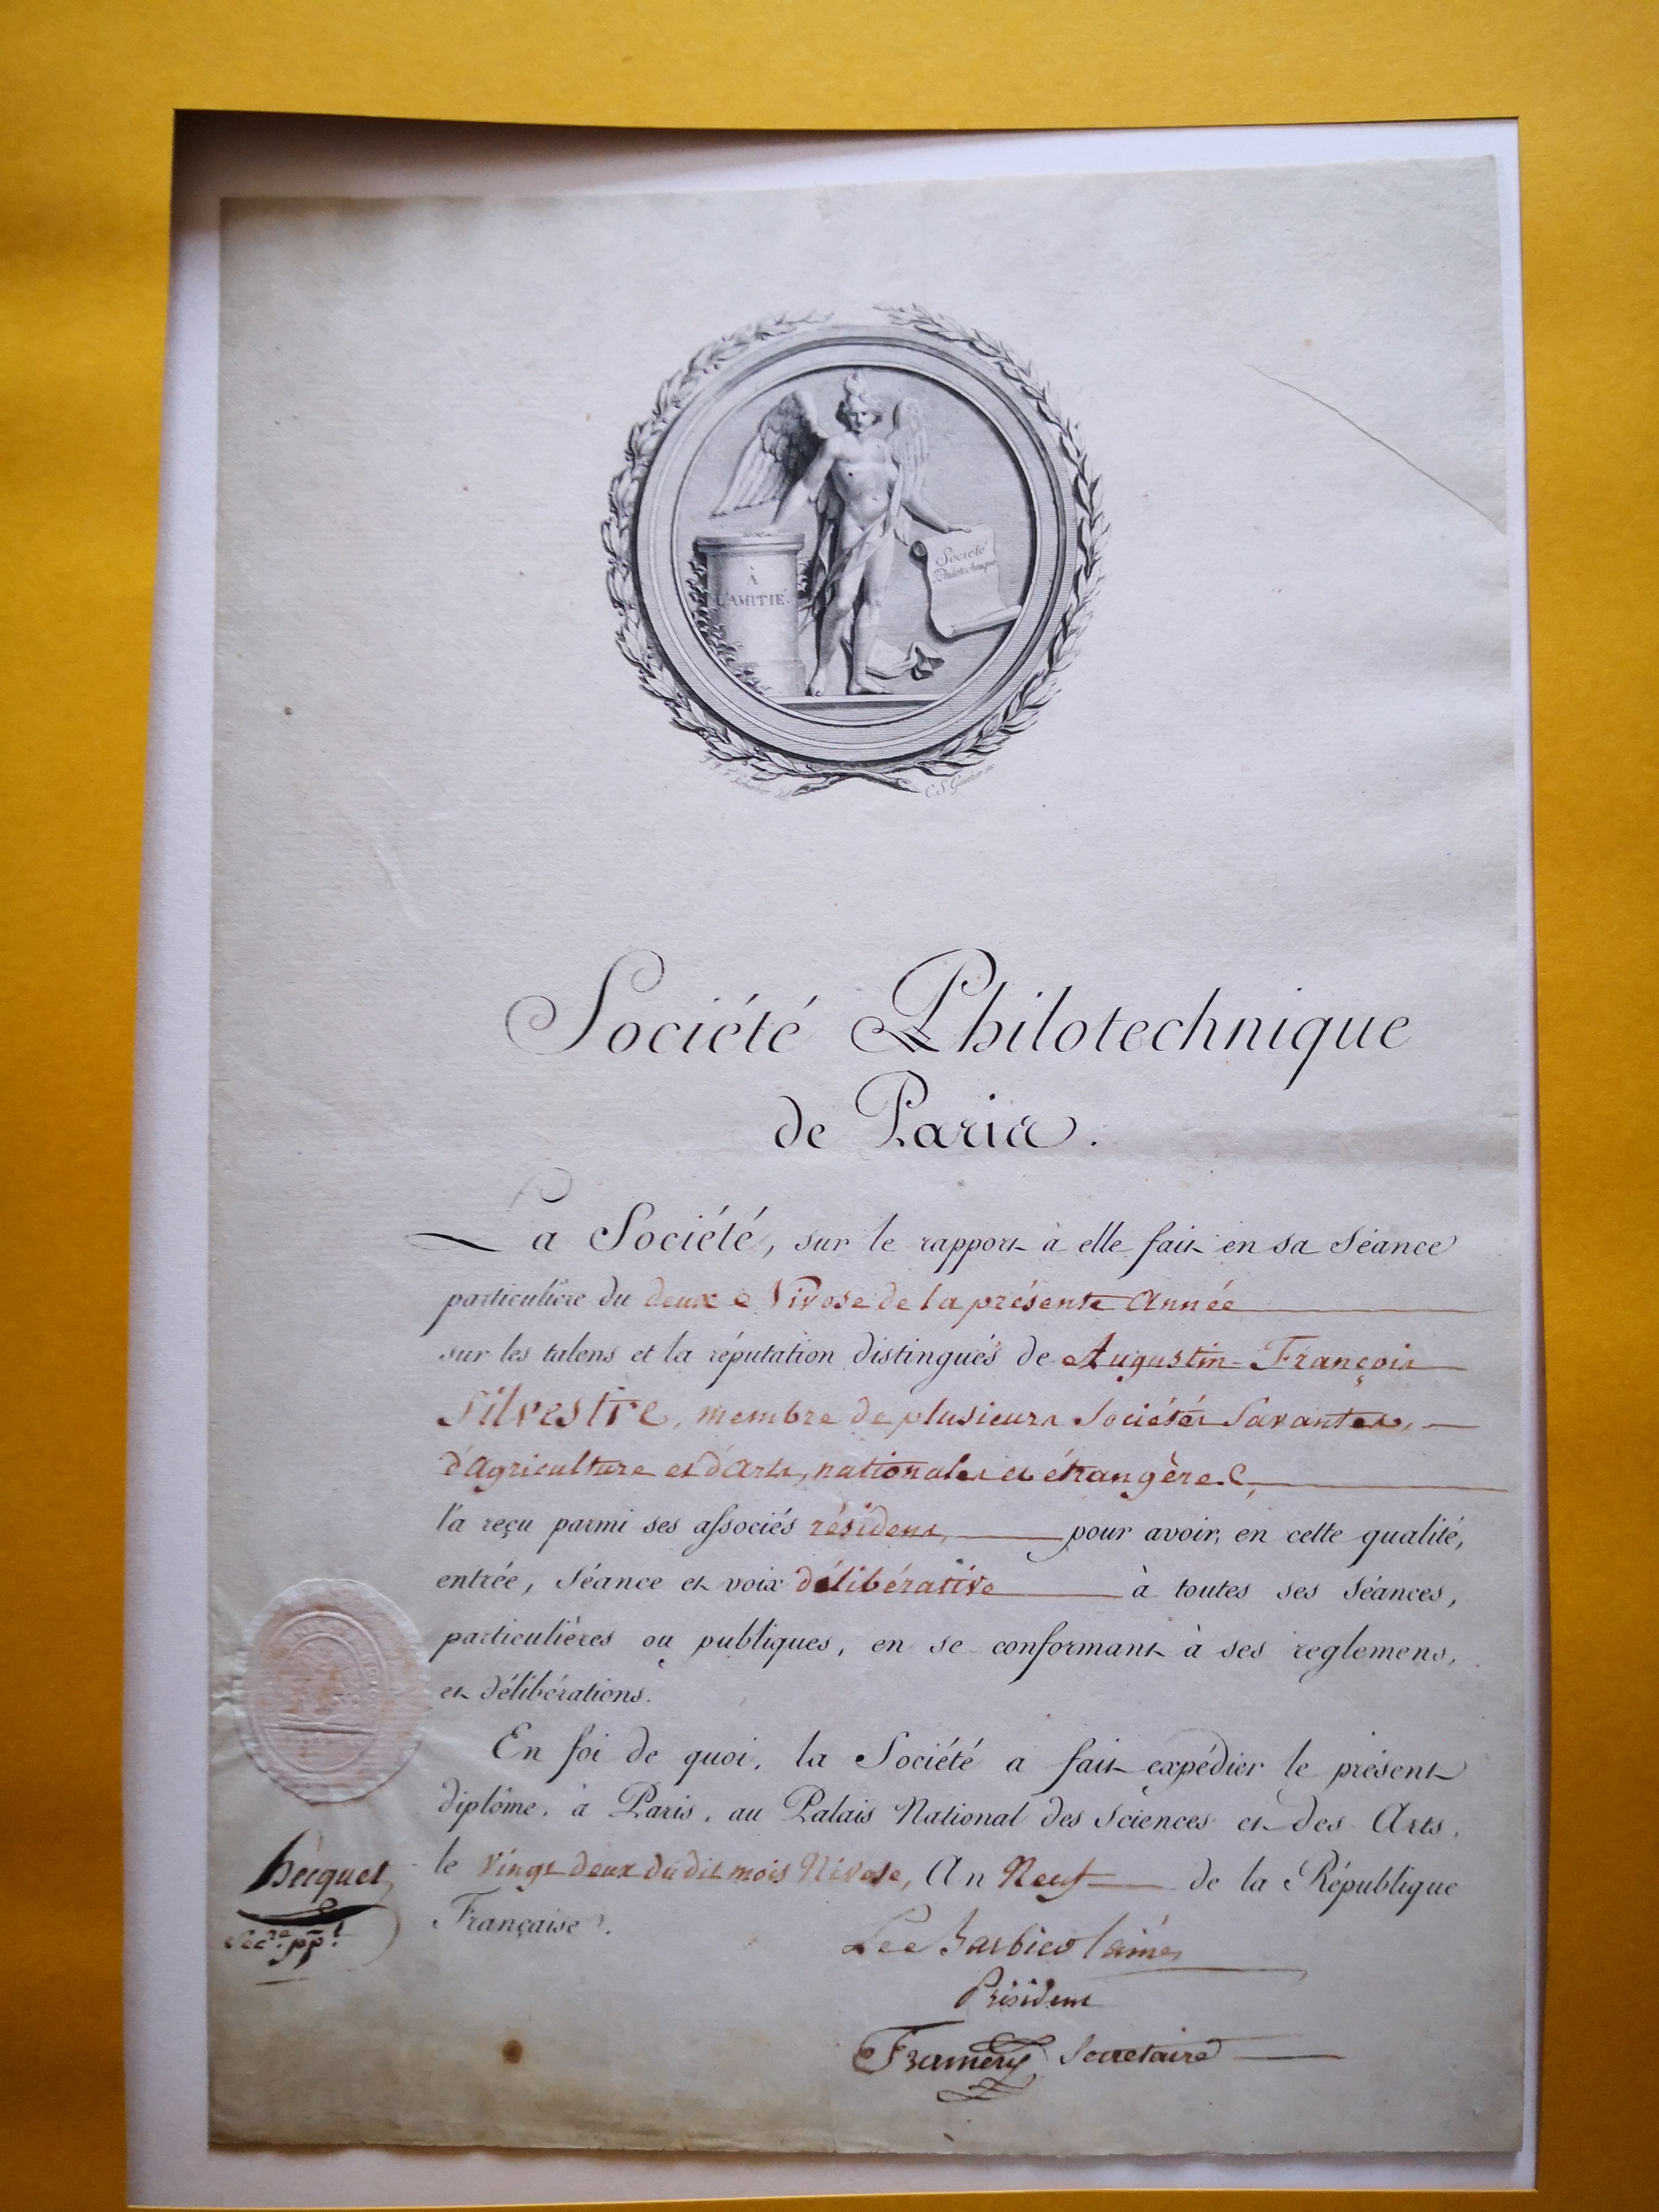 À
L'AMITIÉ.
Société
Philotechnique
C.S. Gaucher inc.
Société Philotechnique
de Paris.
La Société, sur le rapport à elle fait en sa Séance
particulière du deux Nivose de la présente Année
sur les talens et la réputation distingués de Augustin-François
Silvestre, membre de plusieurs Sociétés Savantes,
d'Agriculture et d'Arts, nationales et étrangères,
l'a reçu parmi ses associés résidens, pour avoir, en cette qualité,
entrée, Séance et voix délibérative à toutes ses Séances,
particulières ou publiques, en se conformant à ses reglemens,
et délibérations.
En foi de quoi, la Société a fait expédier le présent
diplôme, à Paris, au Palais National des Sciences et des Arts,
le vingt deux dudit mois Nivose, An Neuf de la République
Française.
hecquet
Secre. ppl.
l'ainé
Président
Framery Secretaire